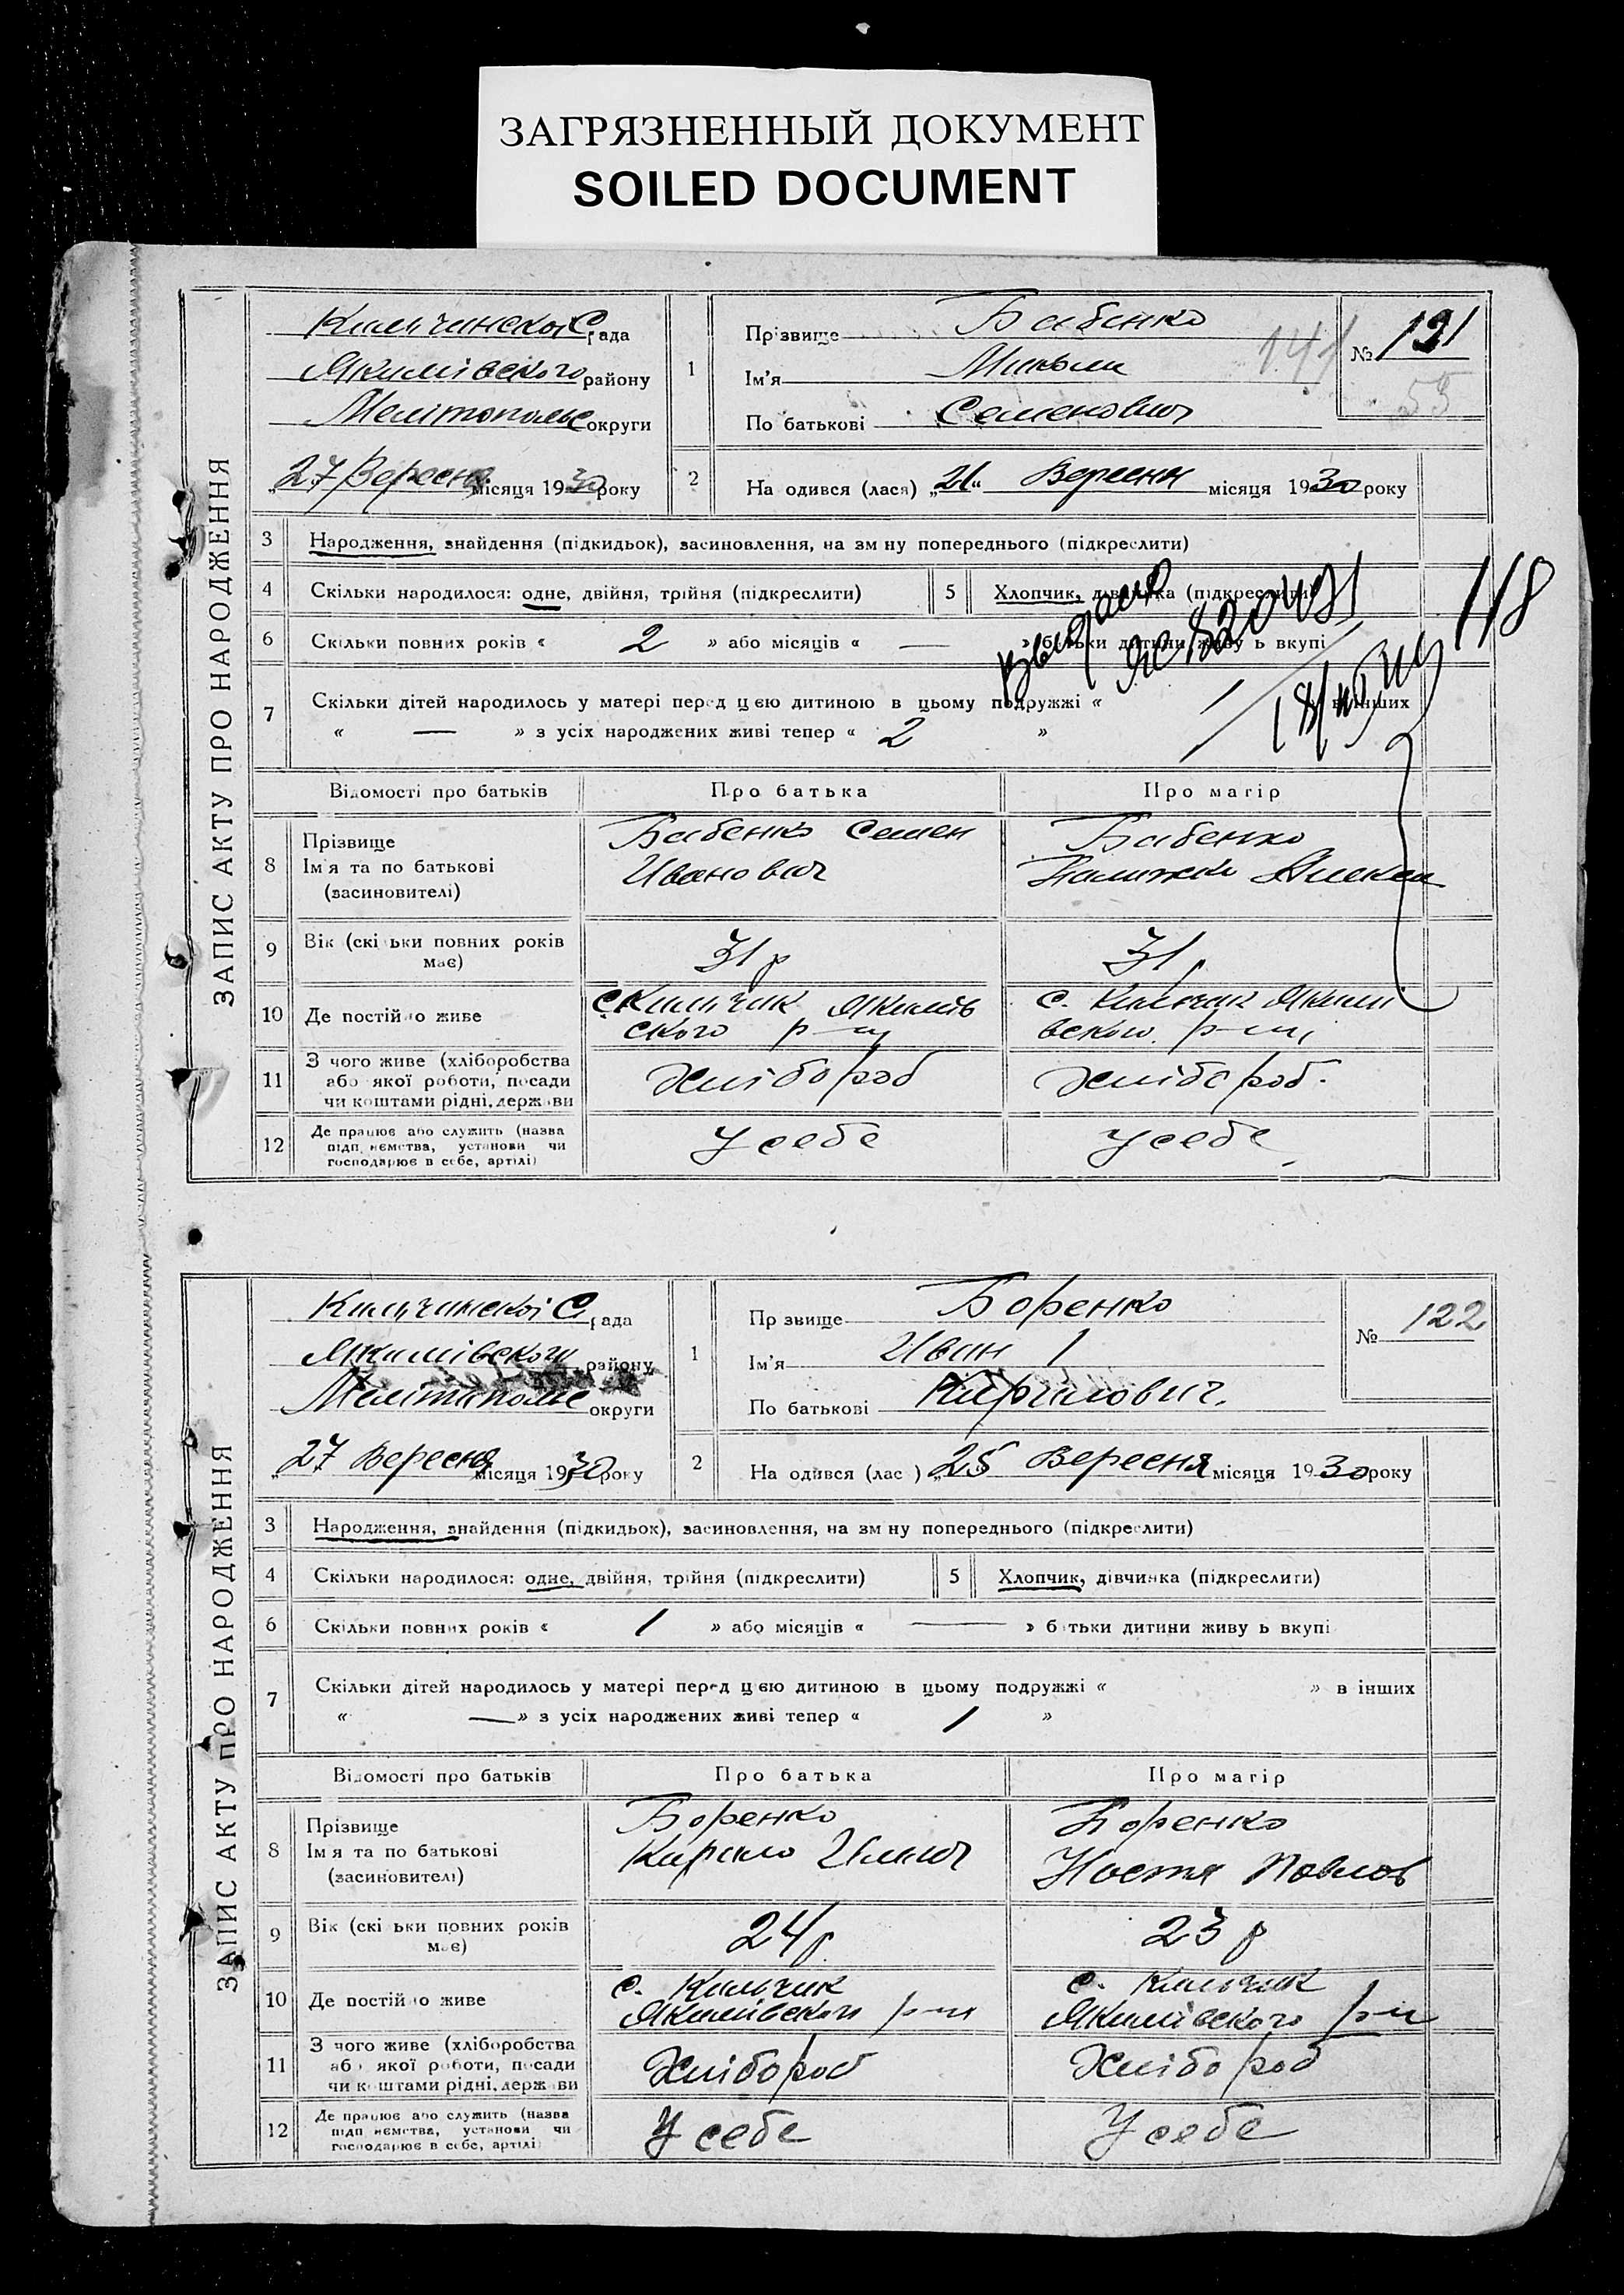 ЗАГРЯЗНЕННЫЙ ДОКУМЕНТ
SOILED DOCUMENT
ЗАПИС АКТУ ПРО НАРОДЖЕННЯ
С рада
Якимівского району
Мелітопольс округи
27 Вересня місяця 1930 року
1
Прізвище Бабенко
Ім'я Микола
По батькові Семенович
№ 121
141
55
2
На одився (лася) „21“ Вересня місяця 1930 року
3 Народження, знайдення (підкидьок), засиновлення, на зм ну попереднього (підкреслити)
4 Скільки народилося: одне, двійня, трійня (підкреслити) 5 Хлопчик, дівчинка (підкреслити)
6 Скільки повних років « 2 » або місяців « — » б тьки дитини живу ь вкупі
118
7 Скільки дітей народилось у матері перед цією дитиною в цьому подружжі « 1 » в інших
« — » з усіх народжених живі тепер « 2 »
Відомості про батьків Про батька Про матір
8 Прізвище
Ім'я та по батькові
(засиновителі)
Бабенко Семен
Иванович
Бабенко
9 Вік (скі ьки повних років
має)
31 р
31 р
10 Де постійно живе
с Кильчик Якимів
ского р-ну
с. Кильчик Якими
вского р-ну
11 З чого живе (хліборобства
або якої роботи, посади
чи коштами рідні, держави
Хлібороб
Хлібороб.
12 Де працює або служить (назва
підп иємства, установи чи
господарює в себе, артілі)
У себе
У себе
ЗАПИС АКТУ ПРО НАРОДЖЕННЯ
С рада
Якимівского району
Мелітопольс округи
27 Вересня місяця 1930 року
1
Пр звище Боренко
Ім'я Иван 1
По батькові Кирилович.
№ 122
2
На одився (лас ) „25 Вересня місяця 1930 року
3 Народження, знайдення (підкидьок), засиновлення, на зм ну попереднього (підкреслити)
4 Скільки народилося: одне, двійня, трійня (підкреслити) 5 Хлопчик, дівчинка (підкреслити)
6 Скільки повних років « 1 » або місяців « — » б тьки дитини живу ь вкупі
7 Скільки дітей народилось у матері перед цією дитиною в цьому подружжі « » в інших
« — » з усіх народжених живі тепер « 1 »
Відомості про батьків Про батька Про матір
8 Прізвище
Ім'я та по батькові
(засиновителі)
Боренко
Кирило Илич
Боренко
Настя Павлов
9 Вік (скі ьки повних років
має)
24 р.
23 р
10 Де постійно живе
с. Кильчик
Якимівского р-на
с. Кильчик
Якимівского р-н
11 З чого живе (хліборобства
або якої роботи, посади
чи коштами рідні, держ ви
Хлібороб
Хлібороб
12 Де працює або служить (назва
підп иємства, установи чи
господарює в себе, артілі
У себе
У себе